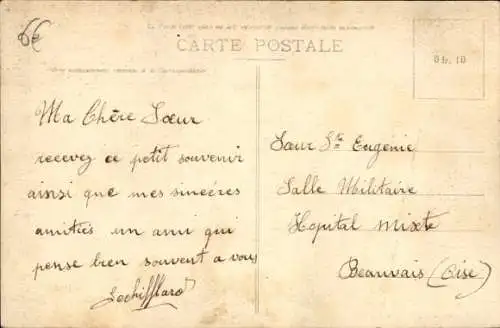 6€
CARTE POSTALE
Ma Chère Sœur
recevez ce petit souvenir
ainsi que mes sincères
amitiés un ami qui
pense bien souvent a vous
Sœur Ste Eugénie
Salle Militaire
Hopital Mixte
Beauvais (Oise)